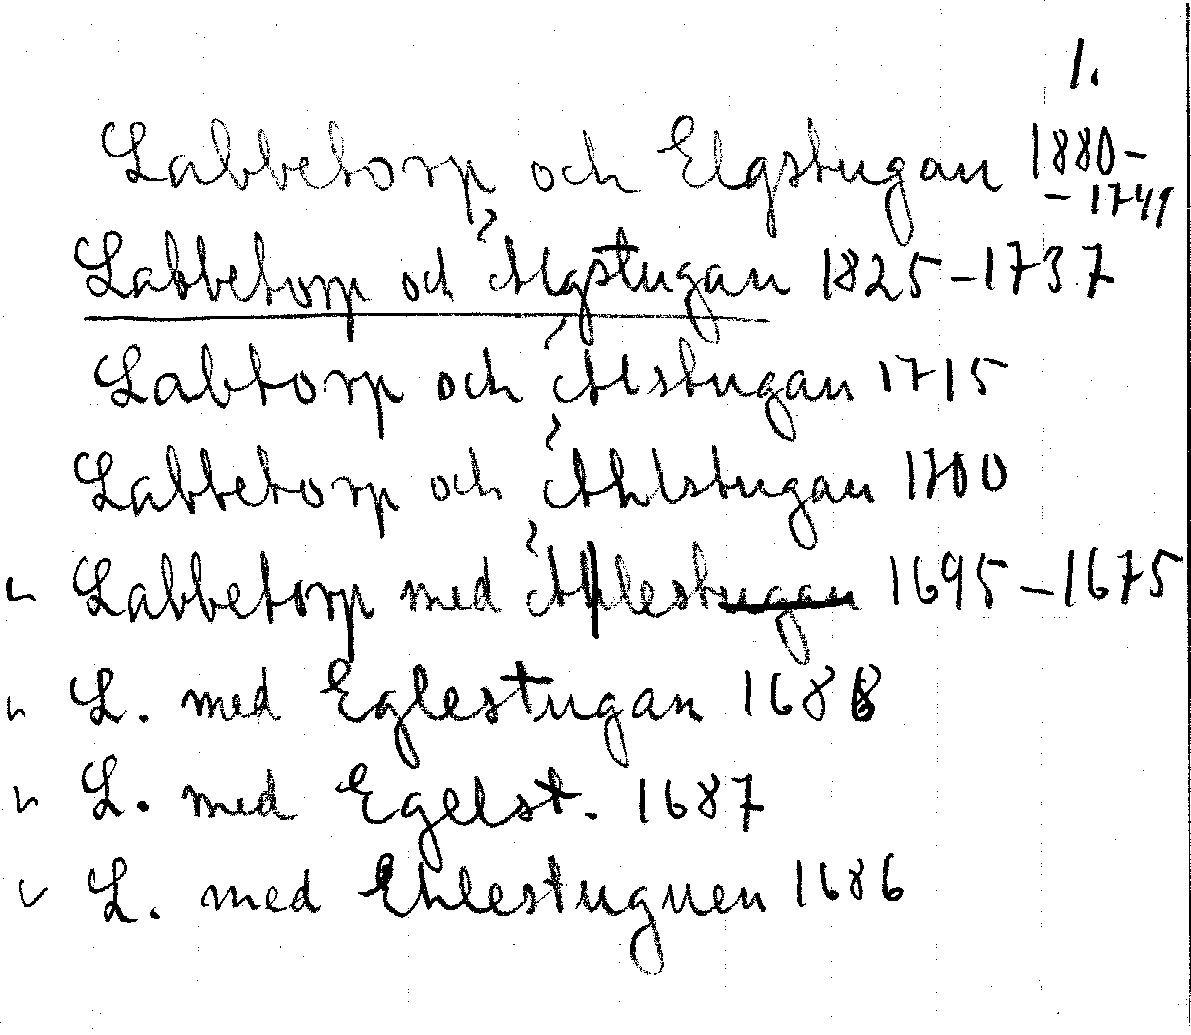 1.
Labbetorp och Elgstugan 1880-
- 1749
Labbetorp och Älgstugan 1825-1737
Labtorp och Älstugan 1715
Labbetorp och Ählstugan 1700
Labbetorp med Ählestugan 1695-1675
L. med Eglestugan 1688
L. med Egelst. 1687
L. med Ehlestuguen 1686